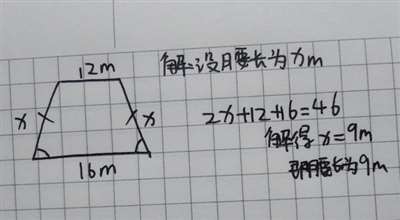 12m
x
x
16m
解:设腰长为xm
2x+12+16=46
解得x=9m
腰长为9m